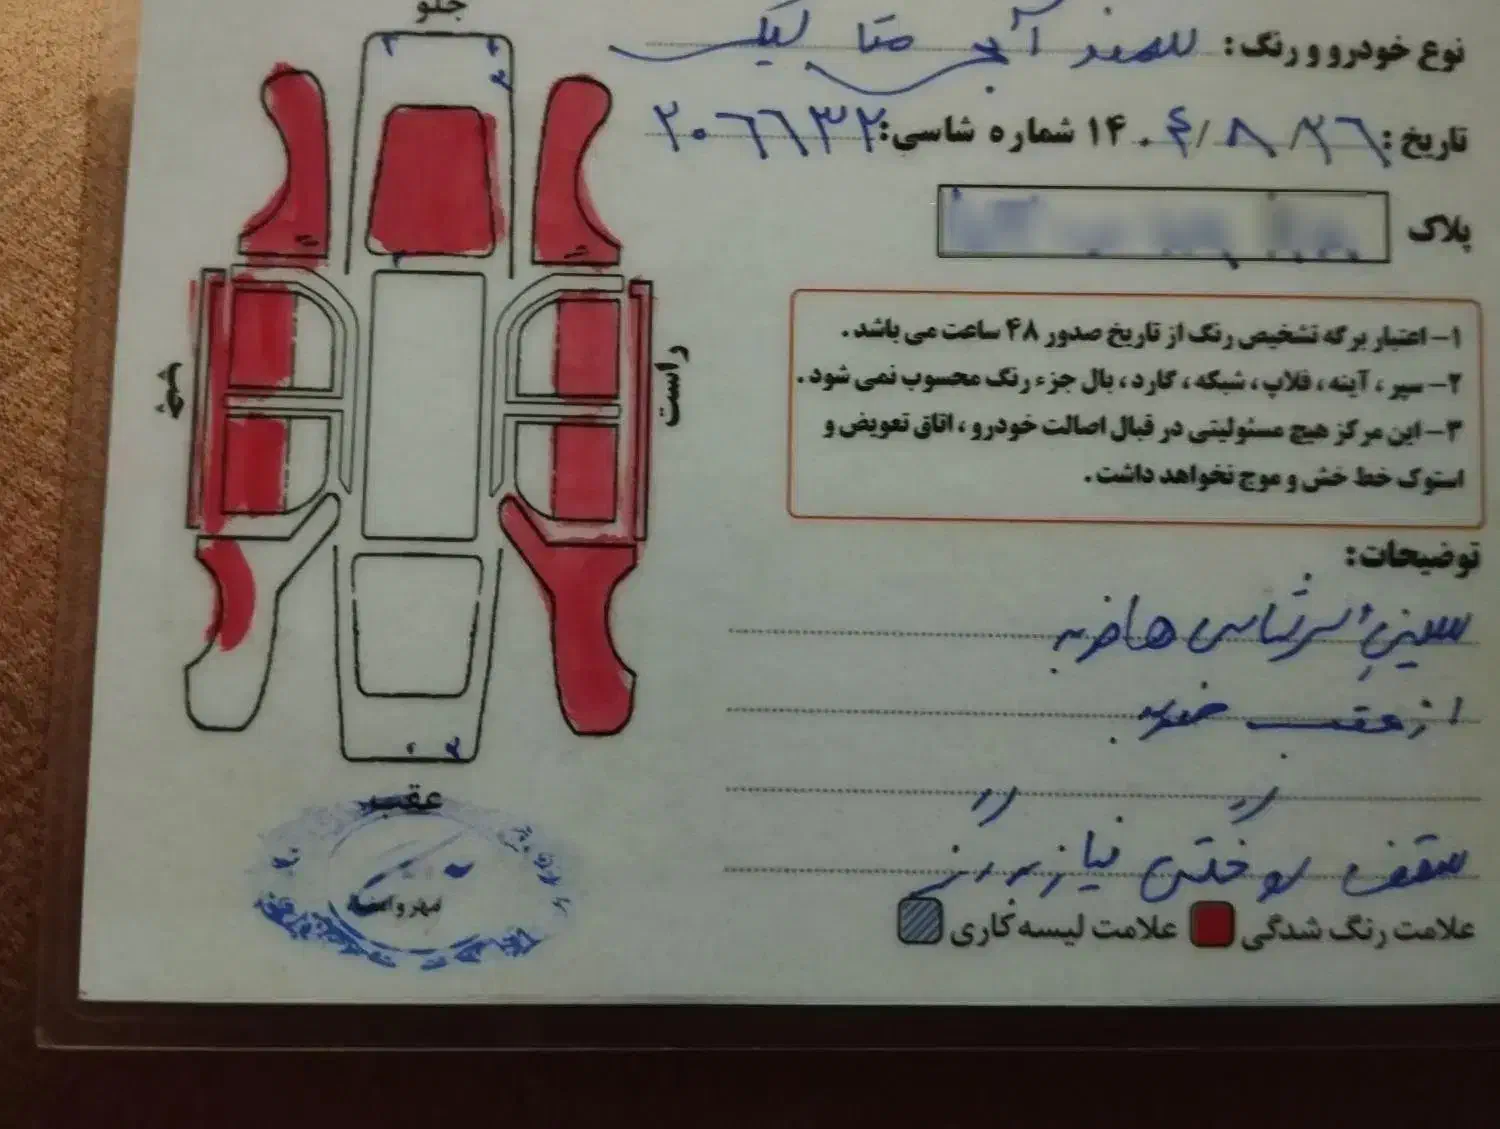 جلو
نوع خودرو و رنگ: سمند آبی متالیک
تاریخ: ۱۴۰۴/۸/۲۶ شماره شاسی: ۲۰۶۶۳۲
پلاک
۱- اعتبار برگه تشخیص رنگ از تاریخ صدور ۴۸ ساعت می باشد.
۲- سپر، آینه، فلاپ، شبکه، گارد، بال جزء رنگ محسوب نمی شود.
۳- این مرکز هیچ مسئولیتی در قبال اصالت خودرو، اتاق تعویض و
استوک خط خش و موج نخواهد داشت.
چپ
راست
توضیحات:
سینی سرشاسی ها ضربه
از عقب ضربه
سقف سوختگی نیاز به رنگ
علامت رنگ شدگی علامت لیسه کاری
عقب
مهر و امضاء